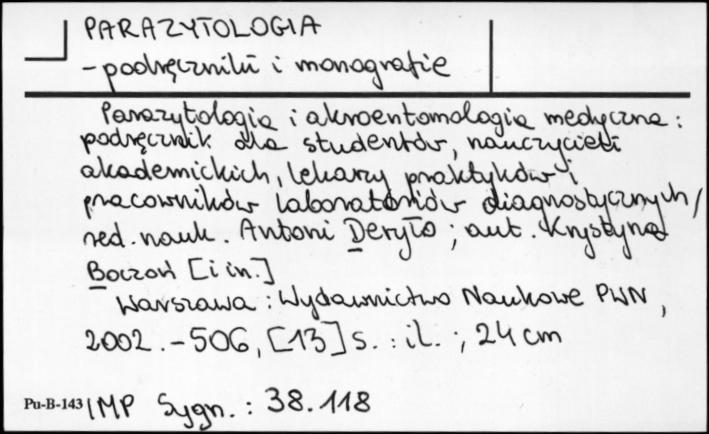 PARAZYTOLOGIA
- podręczniki i monografie
Parazytologia i akroentomologia medyczna :
podręcznik dla studentów, nauczycieli
akademickich, lekarzy praktyków i
pracowników laboratoriów diagnostycznych /
red. nauk. Antoni Deryło ; aut. Krystyna
Boczoń [i in.]
Warszawa : Wydawnictwo Naukowe PWN ,
2002 . - 506, [13] s. : il. ; 24 cm
Pu-B-143 IMP Sygn. : 38.118